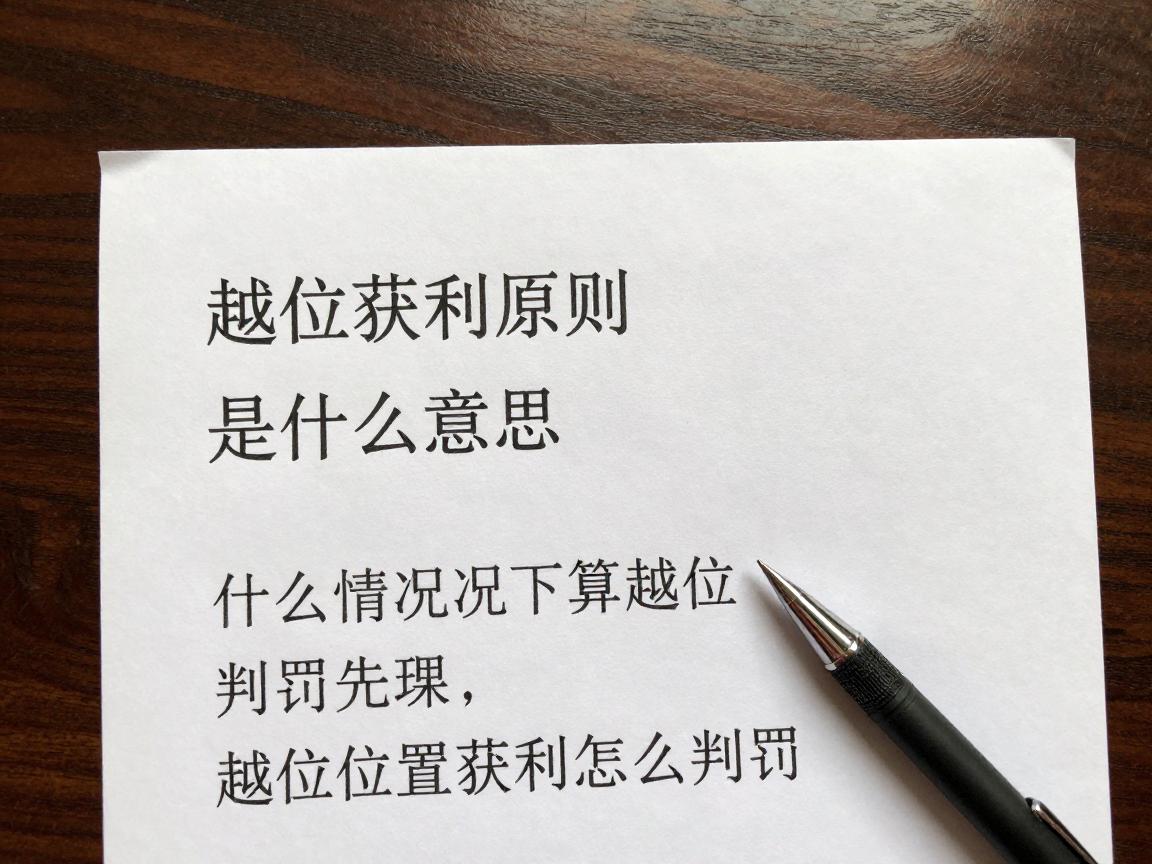 越位获利原则
是什么意思
什么情况况下算越位
判罚先琾，
越位位置获利怎么判罚